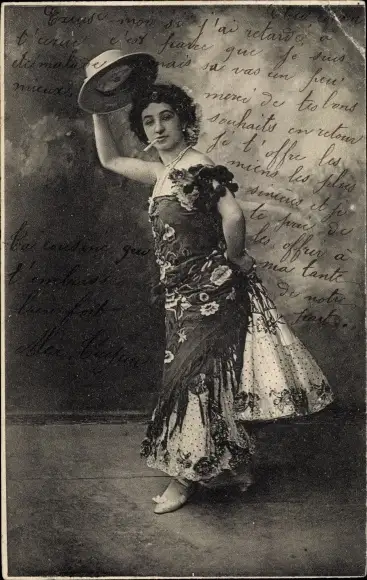 Excuse moi si j'ai retardé à
t'écrire c'est parce que je suis
mais sa vas un peu
mieux merci de tes bons
souhaits en retour
je t'offre les
miens les plus
sincères et je
te prie de
les offrir à
ma tante
de notre
part.
Ta cousine que
t'embrasse
bien fort